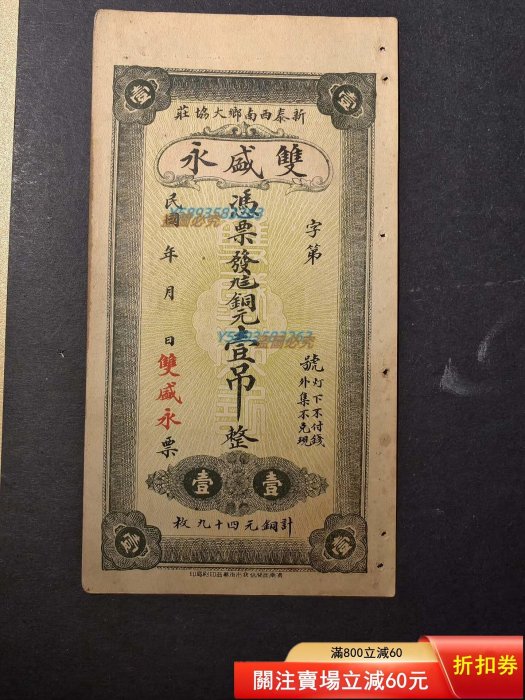 新泰西南鄉大協莊
雙盛永
字第
號
灯下不付錢
外集不兌現
憑票發
銅元壹吊整
民國 年 月 日雙盛永票
壹 壹
計銅元四十九枚
滿800立減60
關注賣場立減60元
折扣券